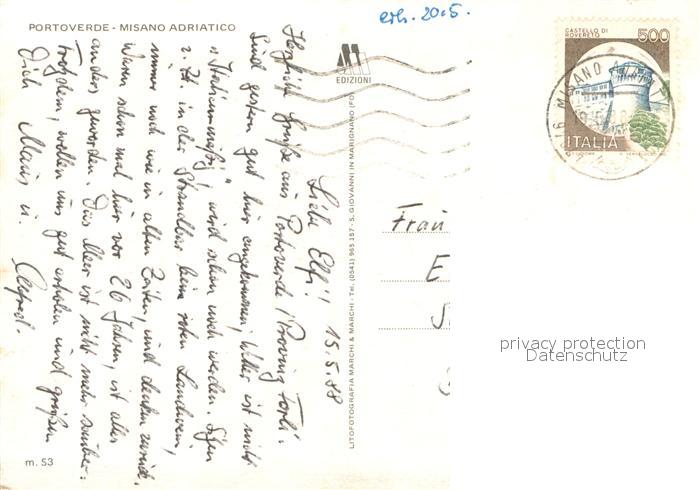 PORTOVERDE - MISANO ADRIATICO
erh. 20.5.
EDIZIONI
CASTELLO DI
ROVERETO
500
ITALIA
MISANO
15.5.88
Liebe Elfi!
Herzliche Grüße aus Portoverde, Provinz Forlì.
Sind gestern gut hier angekommen, Wetter ist nicht
"Italienmäßig", wird schon noch werden. Sitzen
z. Zt in der Strandbar beim roten Landwein,
immer noch wie in alten Zeiten, und denken zurück.
Waren schon mal hier vor 26 Jahren, ist alles
anders geworden. Das Meer ist nicht mehr sauber.
Trotzdem, wollen uns gut erholen und grüßen
Dich Maus u.
Alfred.
LITOFOTOGRAFIA MARCHI & MARCHI - Tel. (0541) 965.157 - S. GIOVANNI IN MARIGNANO (FO)
Frau
E
m. 53
privacy protection
Datenschutz